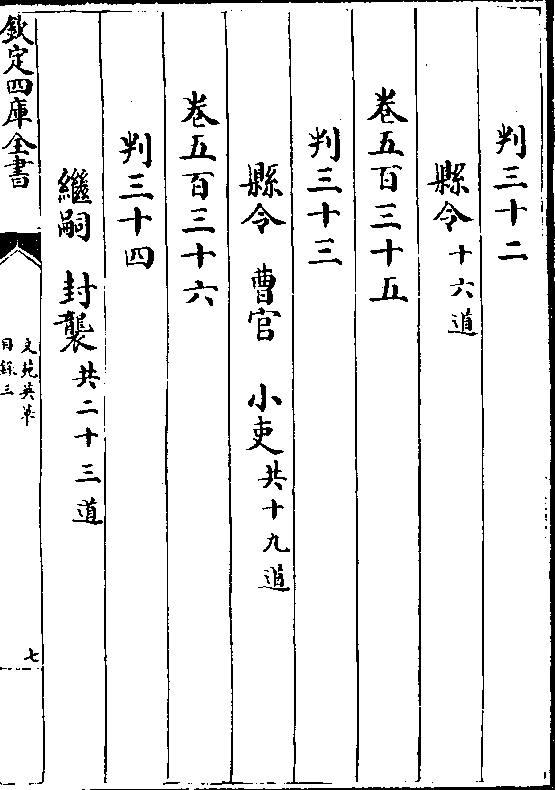 判三十二
縣令十六道
卷五百三十五
判三十三
縣令 曹官 小吏共十九道
卷五百三十六
判三十四
繼嗣 封襲共二十三道
欽定四庫全書
文苑英華
目録三
七